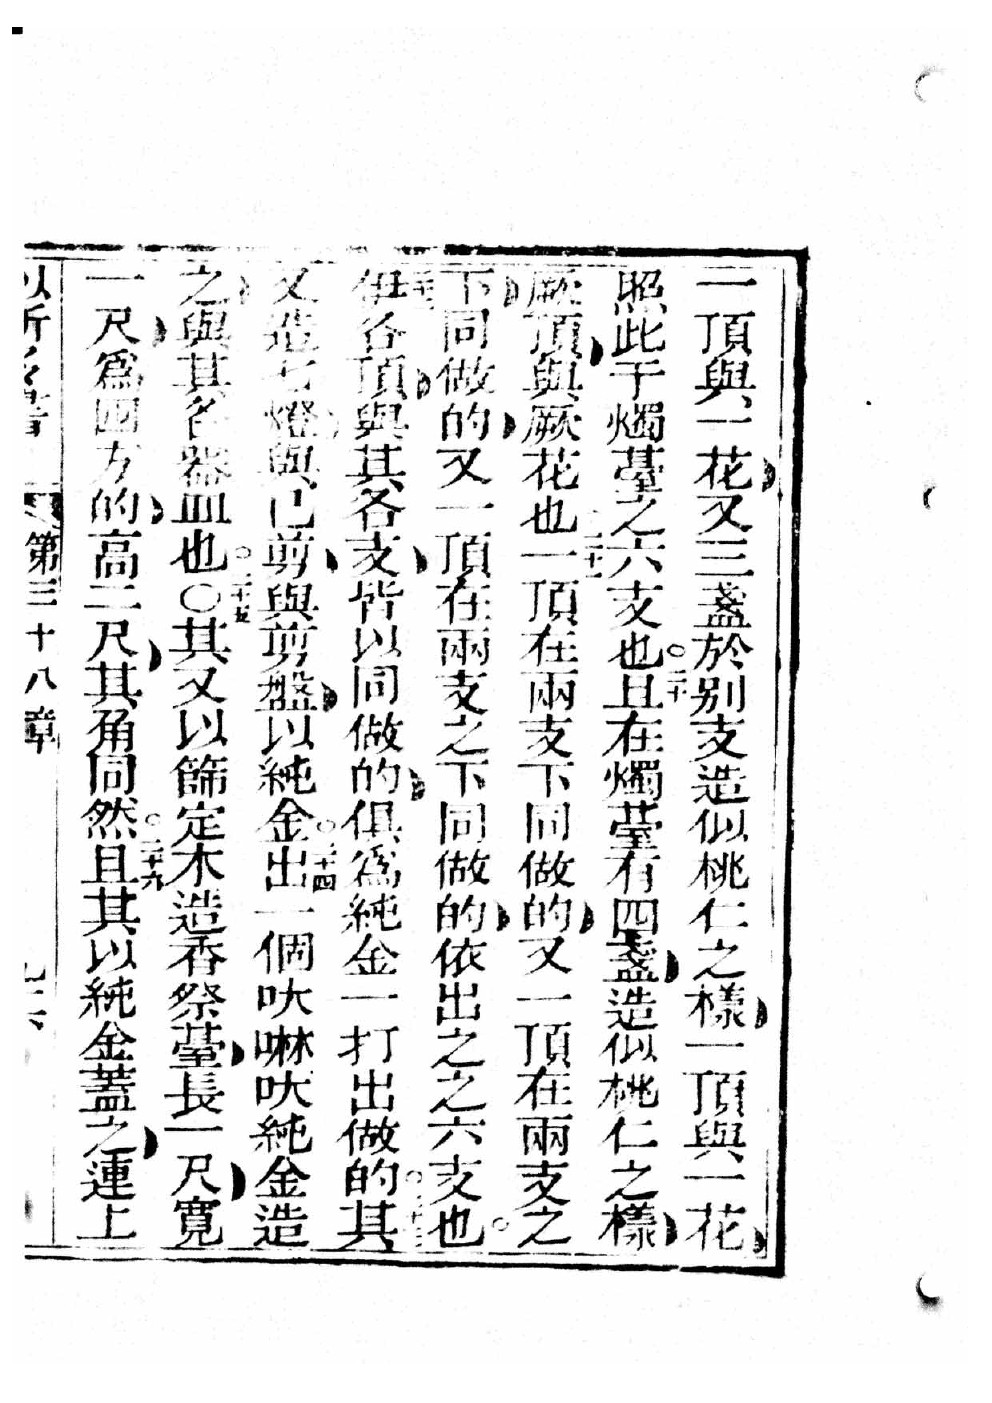 一頂與一花又三盞於别支造似桃仁之樣一頂與一花
照此于燭薹之六支也二十且在燭薹有四盞造似桃仁之樣
厥頂與厥花也二十一一頂在兩支下同做的又一頂在兩支之
下同做的又一頂在兩支之下同做的依出之之六支也
伊各頂與其各支皆以同做的俱爲純金一打出做的其
又造七燈與已剪與剪盤以純金二十四出一個呔啉呔純金造
之與其各器皿也二十五〇其又以篩定木造香祭薹長一尺寬
一尺爲四方的高二尺其角同然二十六且其以純金蓋之連上
第三十八章